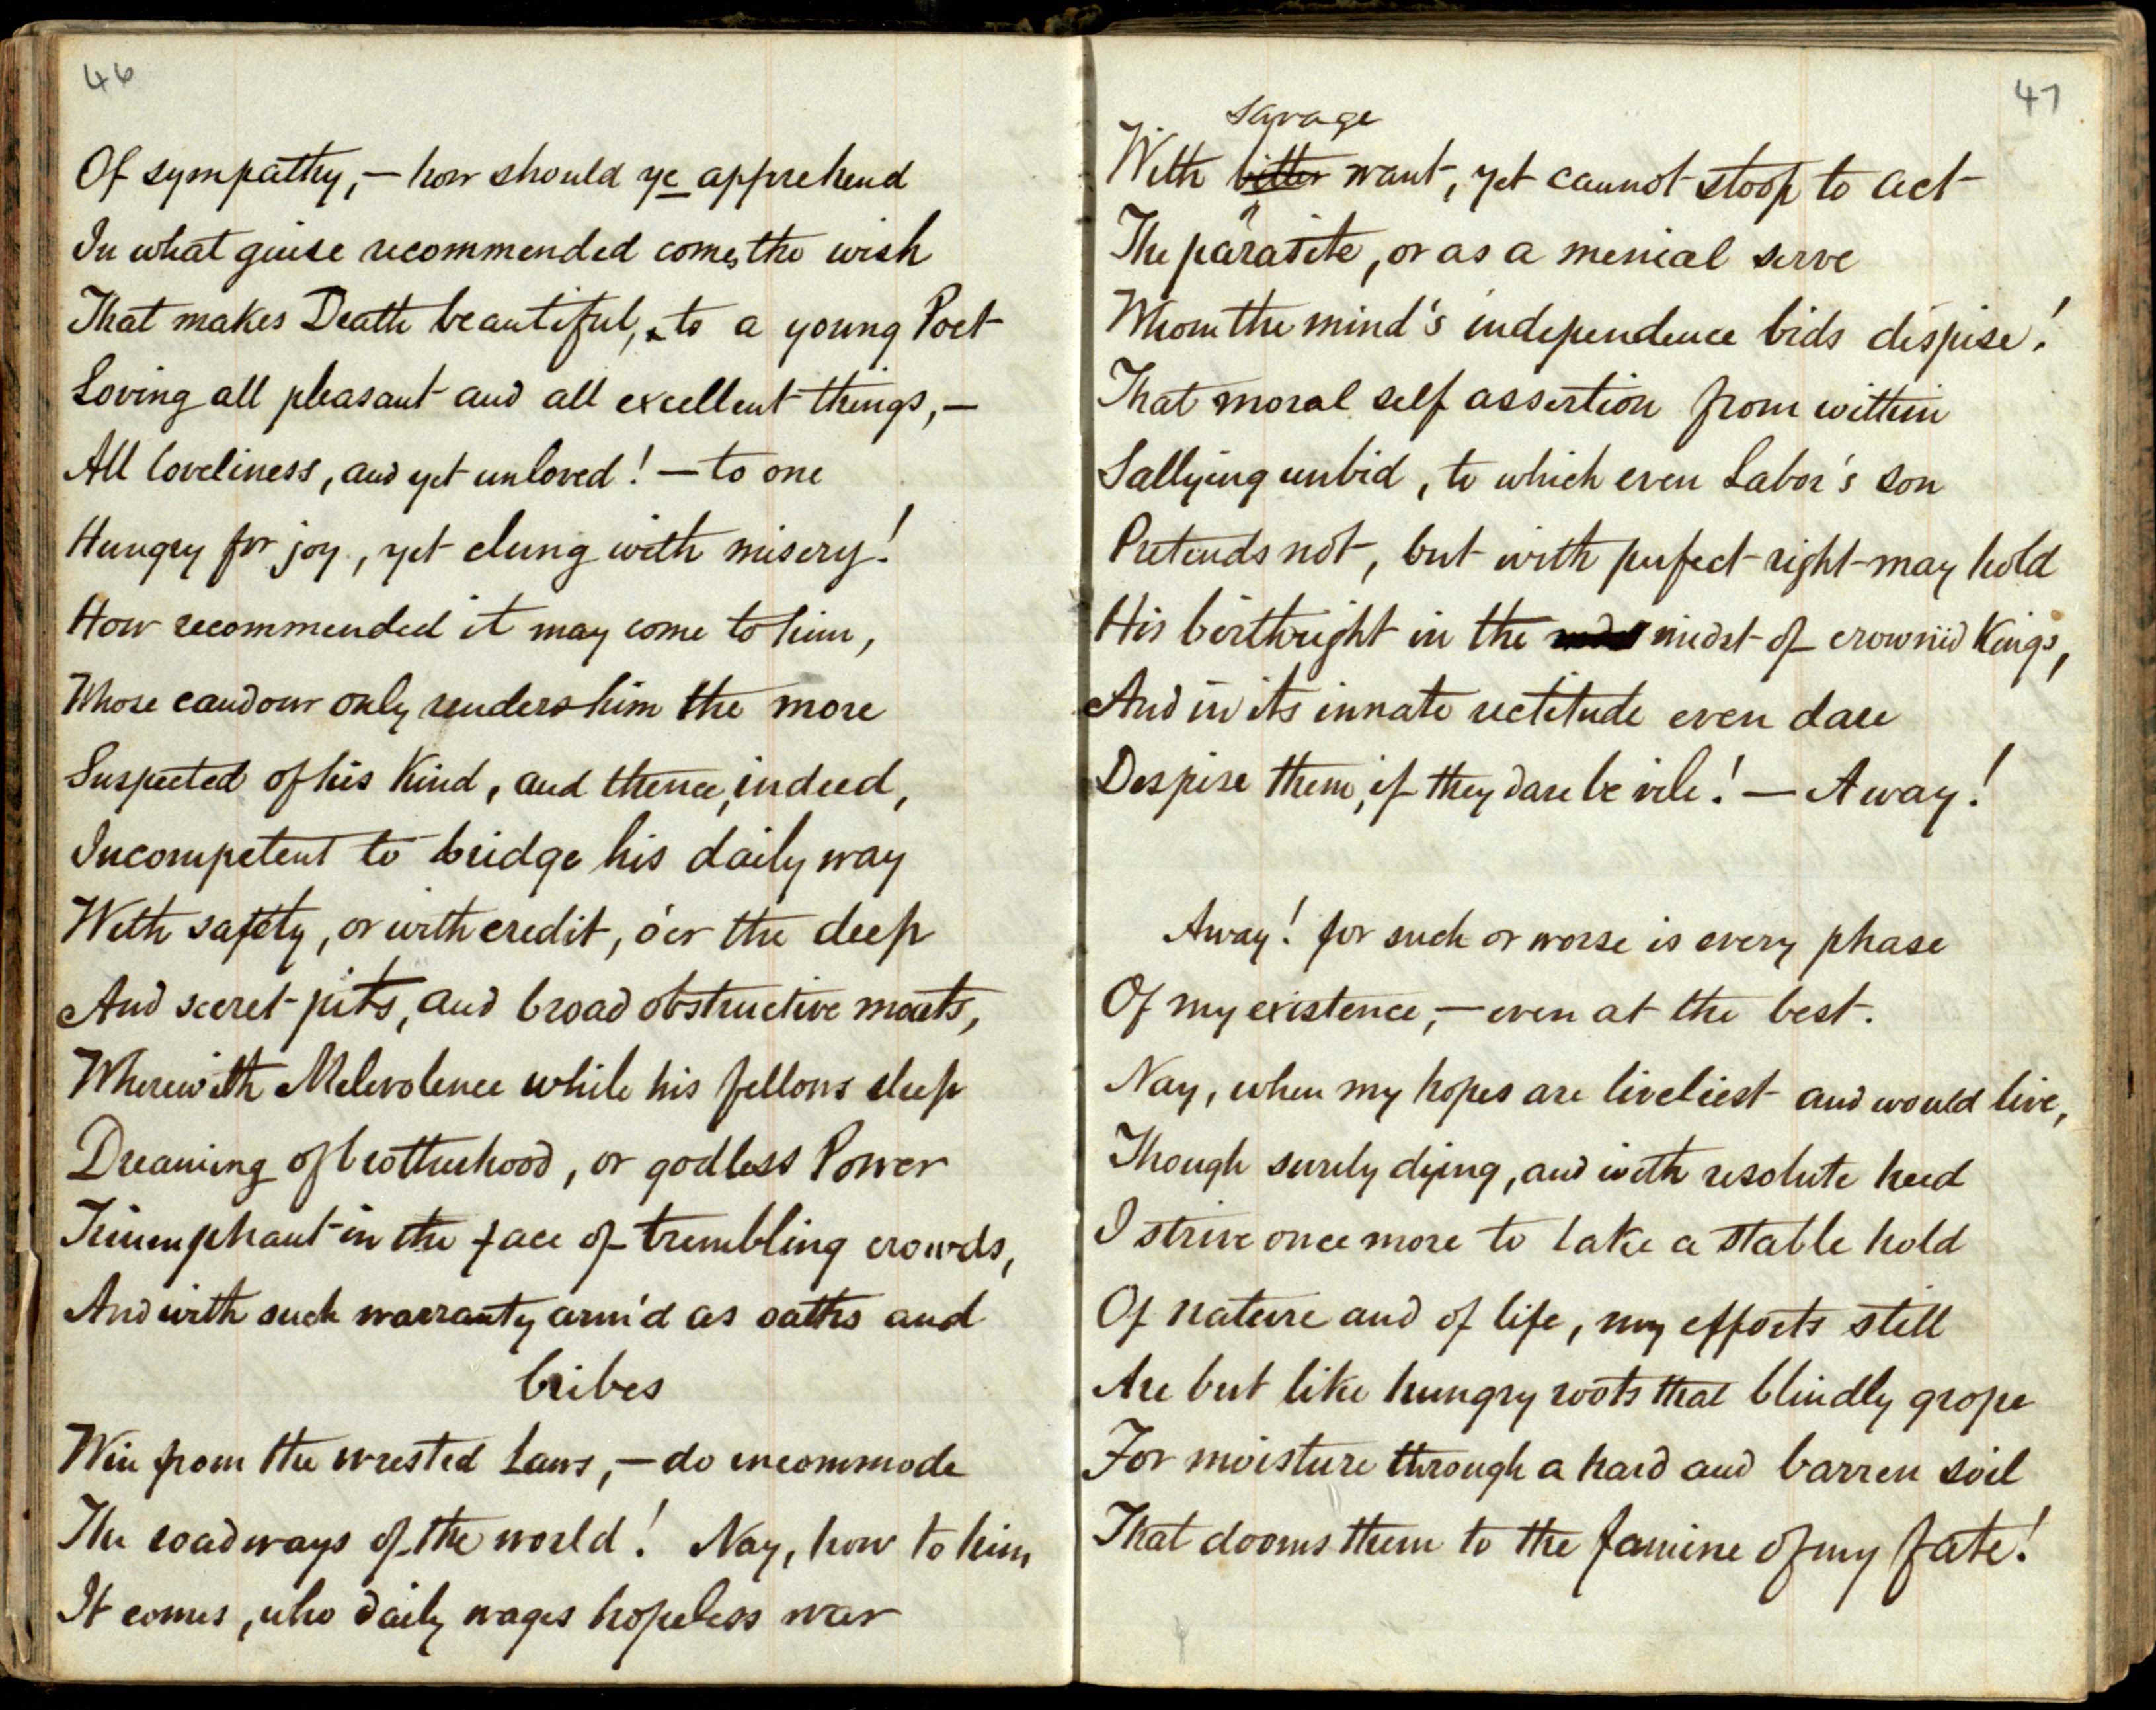 46
Of sympathy,— how should ye apprehend
In what guise recommended comes the wish
That makes Death beautiful, to a young Poet
Loving all pleasant and all excellent things,—
All loveliness, and yet unloved! — to one
Hungry for joy, yet clung with misery!
How recommended it may come to him,
Whose candour only renders him the more
Suspected of his Kind, and thence, indeed,
Incompetent to bridge his daily way
With safety, or with credit, o'er the deep
And secret pits, and broad obstructive moats,
Wherewith Malevolence while his fellows sleep
Dreaming of brotherhood, or godless Power
Triumphant in the face of trembling crowds,
And with such warranty arm'd as oaths and
bribes
Win from the wrested Laws,— do incommode
The roadways of the world! Nay, how to him
It comes, who daily wages hopeless war
47
savage
With bitter want, yet cannot stoop to act
The parasite, or as a menial serve
Whom the mind's independence bids despise!
That moral self assertion from within
Sallying unbid, to which even Labor's son
Pretends not, but with perfect right may hold
His birthright in the midst of crownid Kings,
And in its innate rectitude even dare
Despise them, if they dare be vile! — Away!
Away! for such or worse is every phase
Of my existence,— even at the best.
Nay, when my hopes are liveliest and would live,
Though surely dying, and with resolute heed
I strive once more to take a stable hold
Of nature and of life, my efforts still
Are but like hungry roots that blindly grope
For moisture through a hard and barren soil
That dooms them to the famine of my fate!